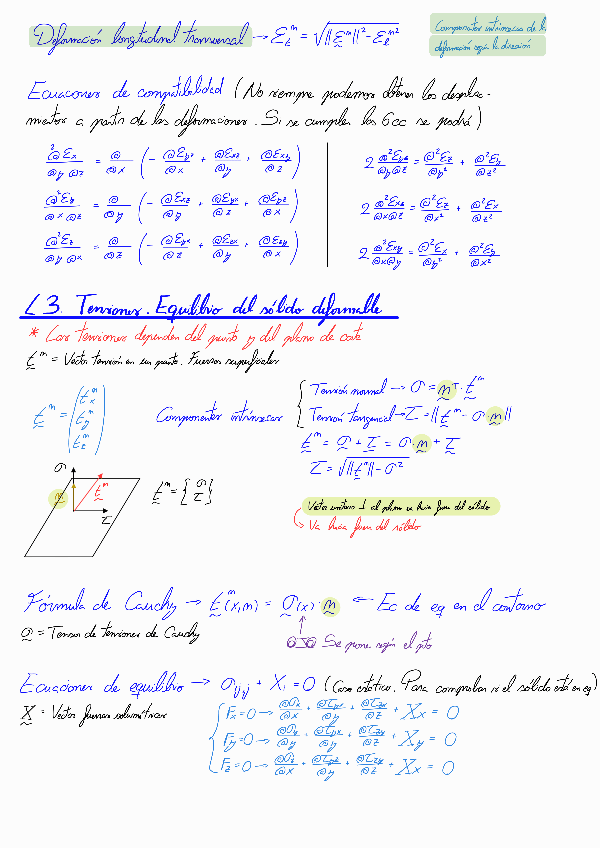 Deformación longitudinal transversal → ε_t^m = √(||ε^m||² - ε_l^m²)
Componentes intrínsecas de la
deformación según la dirección
Ecuaciones de compatibilidad (No siempre podemos obtener los despla-
mientos a partir de las deformaciones. Si se cumplen las 6 ec se podrá)
∂²εx/∂y∂z = ∂/∂x (-∂εyz/∂x + ∂εxz/∂y + ∂εxy/∂z)
2 ∂²εyz/∂y∂z = ∂²εz/∂y² + ∂²εy/∂z²
∂²εy/∂x∂z = ∂/∂y (-∂εxz/∂y + ∂εyx/∂z + ∂εyz/∂x)
2 ∂²εxz/∂x∂z = ∂²εz/∂x² + ∂²εx/∂z²
∂²εz/∂y∂x = ∂/∂z (-∂εyx/∂z + ∂εzx/∂y + ∂εzy/∂x)
2 ∂²εxy/∂x∂y = ∂²εx/∂y² + ∂²εy/∂x²
L3. Tensiones. Equilibrio del sólido deformable
* Las tensiones dependen del punto y del plano de corte
t^m = Vector tensión en un punto. Fuerzas superficiales
t^m = (t_x^m t_y^m t_z^m)
Componentes intrínsecas
Tensión normal → σ = m^T · t^m
Tensión tangencial → τ = ||t^m - σ·m||
t^m = σ + τ = σ·m + τ
τ = √(||t^m|| - σ²)
σ
m
t^m
τ
t^m = {σ τ}
Vector unitario ⊥ al plano va hacia fuera del sólido
Va hacia fuera del sólido
Fórmula de Cauchy → t^m(x,m) = σ(x)·m ← Ec de eq en el contorno
σ = Tensor de tensiones de Cauchy
Se pone según el pto
Ecuaciones de equilibrio → σij,j + Xi = 0 (Caso estático. Para comprobar si el sólido está en eq)
X = Vector fuerzas volumétricas
Fx = 0 → ∂σx/∂x + ∂τyx/∂y + ∂τzx/∂z + Xx = 0
Fy = 0 → ∂σy/∂y + ∂τyx/∂x + ∂τzy/∂z + Xy = 0
Fz = 0 → ∂σz/∂x + ∂τyz/∂y + ∂τzx/∂z + Xx = 0